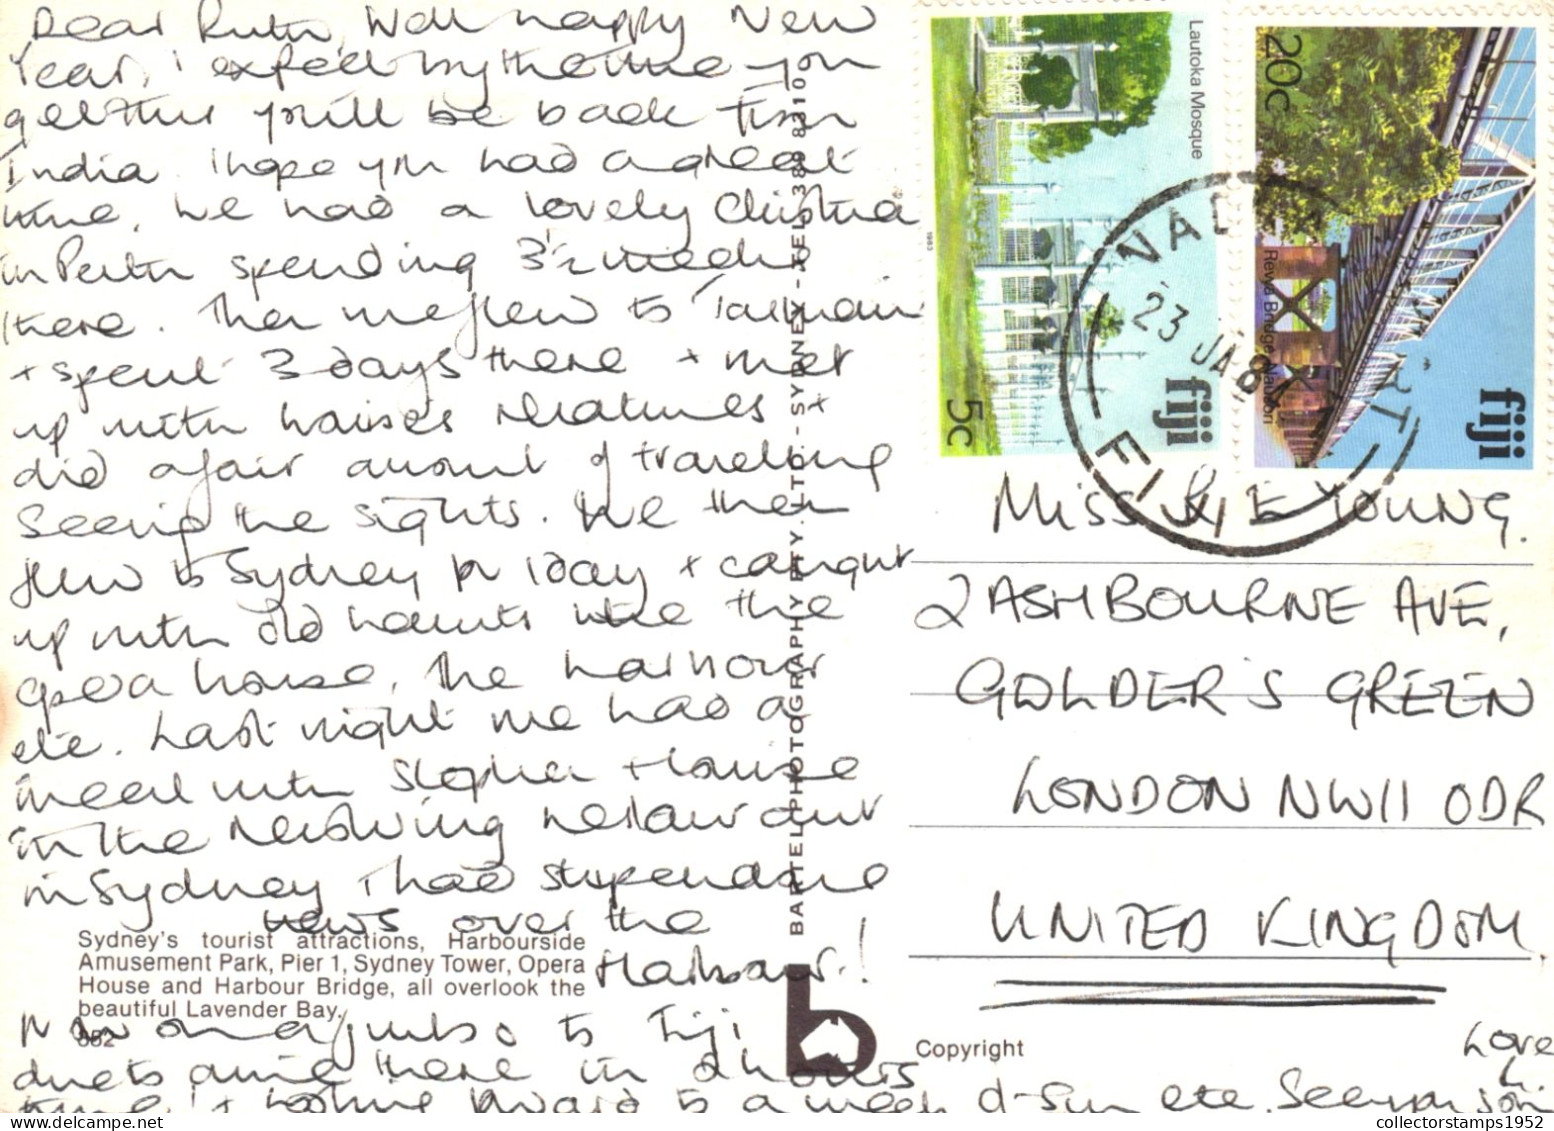 Dear Ruth, Well happy New
Year, I expect by the time you
get this you'll be back from
India. I hope you had a great
time. We had a lovely Christmas
in Perth spending 3½ weeks
there. Then we flew to Tasmania
+ spent 3 days there + met
up with Louise's relatives +
did a fair amount of travelling
seeing the sights. We then
flew to Sydney for 1 day + caught
up with old haunts like the
opera house, the harbour
etc. Last night we had a
meal with Stephen + Louise
in the revolving restaurant
in Sydney + had stupendous
views over the
Harbour!
Sydney's tourist attractions, Harbourside
Amusement Park, Pier 1, Sydney Tower, Opera
House and Harbour Bridge, all overlook the
beautiful Lavender Bay.
882
Now on a jumbo to Fiji
due to arrive there in 2 hours
time + looking forward to a week of sun etc. See you soon
Love
L.
BARTEL PHOTOGRAPHY PTY. LTD. - SYDNEY - TEL
Lautoka Mosque
1983
5c
fiji
20c
Rewa Bridge, Nausori
fiji
23 JA 8
FIJI
MISS R E YOUNG.
2 ASHBOURNE AVE,
GOLDER'S GREEN
LONDON NW11 0DR
UNITED KINGDOM.
b
Copyright
collectorstamps1952